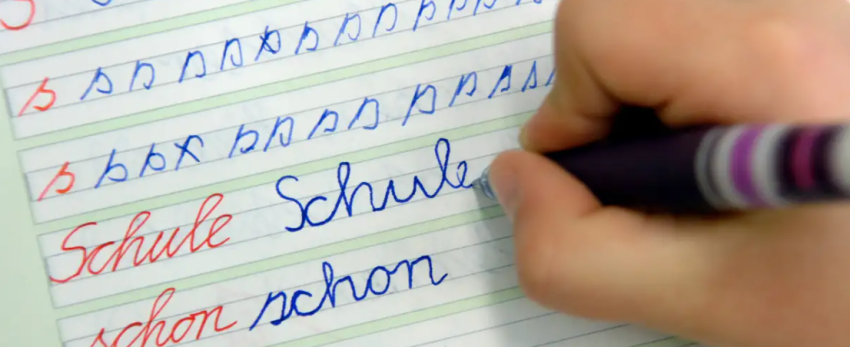 s s s s s s s s s s s s
s s s s s s s s s s s s
Schule Schule
schon schon